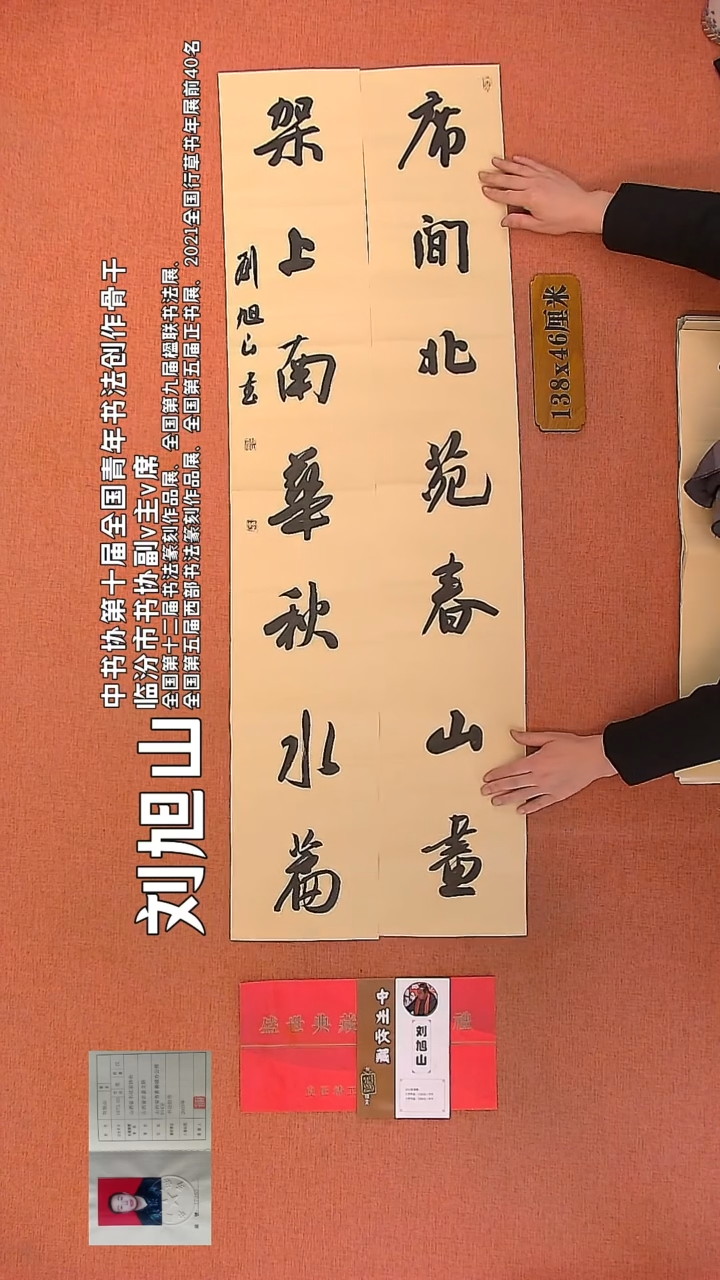 席間北苑春山畫
架上南華秋水篇
劉旭山書
138x46厘米
刘旭山
中书协第十届全国青年书法创作骨干
临汾市书协副v主v席
全国第十二届书法篆刻作品展、全国第九届楹联书法展、
全国第五届西部书法篆刻作品展、全国第五届正书展、2021全国行草书年展前40名
盛世典藏
中州收藏
刘旭山